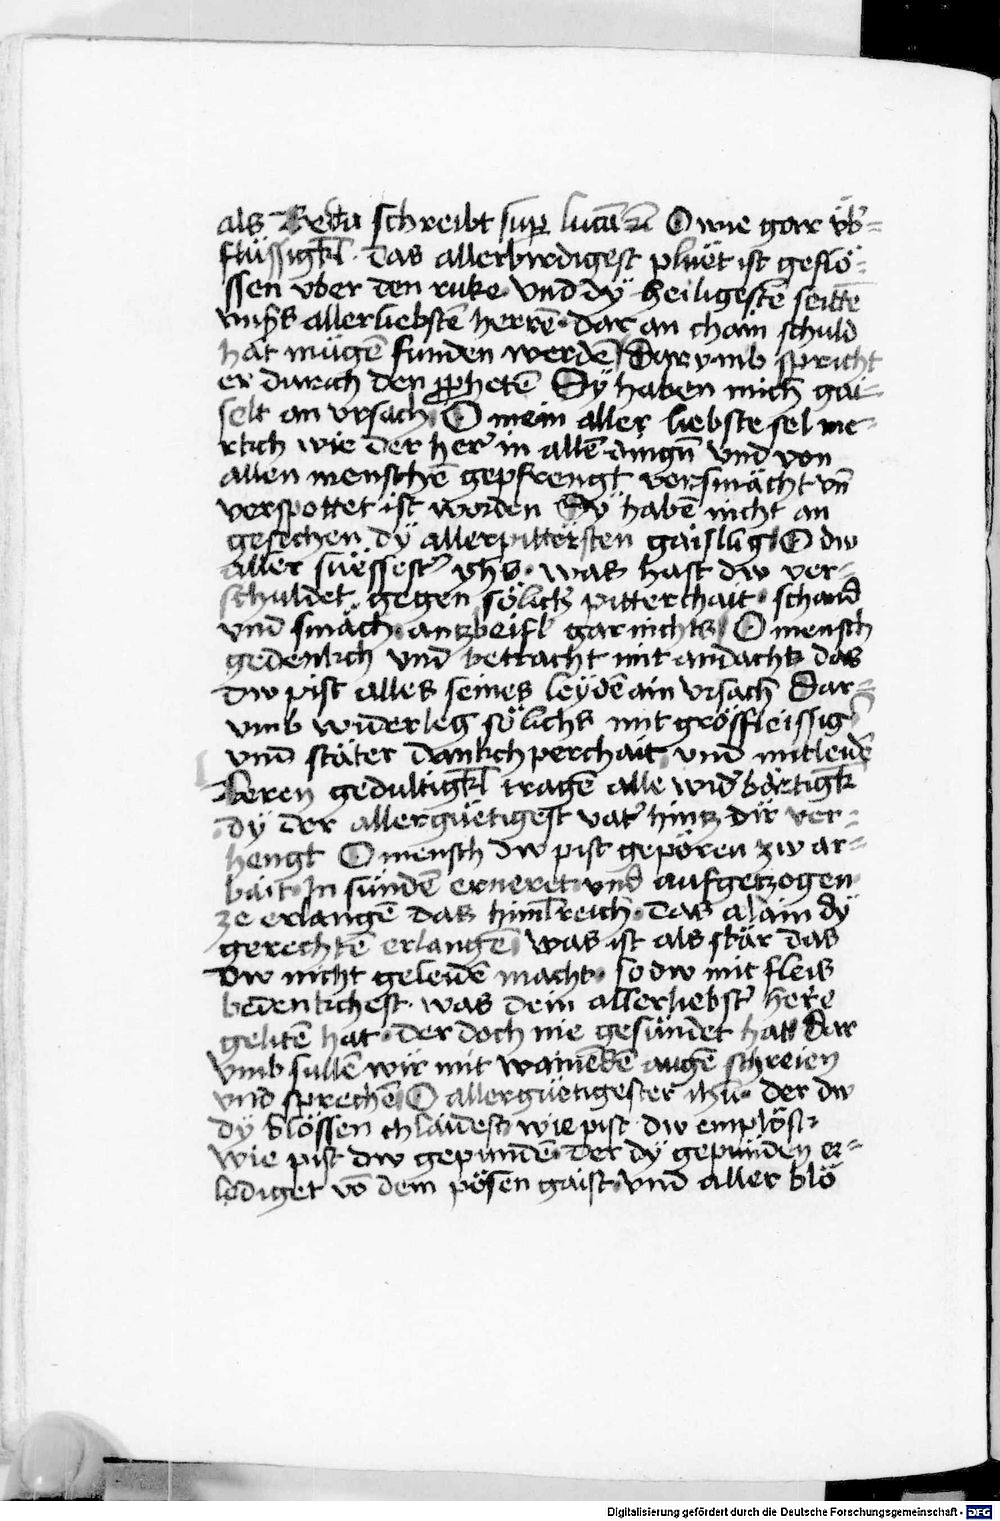 als Beda schreibt sup̲ lucā 22 O wie gar üb̄=
flüssigkl̄. das allerbirdigest pluet ist geflö=
ssen vber den ruke vnd dÿ heiligestē seittē
vnſs̄ allerliebstē herrē. dar an chain schuld
hat mügē funden werdē Dar vmb spricht
er durch den ꝓphetē Sÿ haben mich gai=
selt an vrsach O mein aller liebste sel me=
rkch wie der her in allē dingn̄ vnd von
allen menschē gepfrengt versmächt vn̄
verspottet ist worden Sÿ habē nicht an
gesechen dÿ allerpittersten gaislūg O dw
aller süessest̄ yhs. was hast dw ver=
schuldet. gegen sölicḥ pitterchait. schand
vnd smäch. antzbeifl gar nichts O mensch
gedenkch vnd betracht mit andacht das
dw pist alles seines leÿdē ain vrsach Dar=
vmb widerleg sölichs mit grösfleissiḡ
vnd stäter dankchperchait vnd mitleidē
beren gedultigkl̄ tragē alle wid̄bärtigk̄
dÿ der allergüetigest vat̄ hintz dir ver=
hengt O mensch dw pist gepören zw ar=
bait. In sündē erneret vnd aufgetzogen
ze erlangē das himl̄reich. das alain dÿ
gerechtē erlangē was ist als skär das
dw nicht geleidē macht. so dw mit fleis
bedenkchest. was dein allerliebst̄ herre
gelitē hat. der doch nie gesündet hatt Dar
vmb sullē wir mit wainēdē augē schreien
vnd sprechē O allergüetigester ihū. der dw
dÿ blössen chlaidest wie pist dw emplöst=
wie pist dw gepundē. der dÿ gepunden er=
lediget vō dem pösen gaist. vnd aller blö
Digitalisierung gefördert durch die Deutsche Forschungsgemeinschaft - DFG